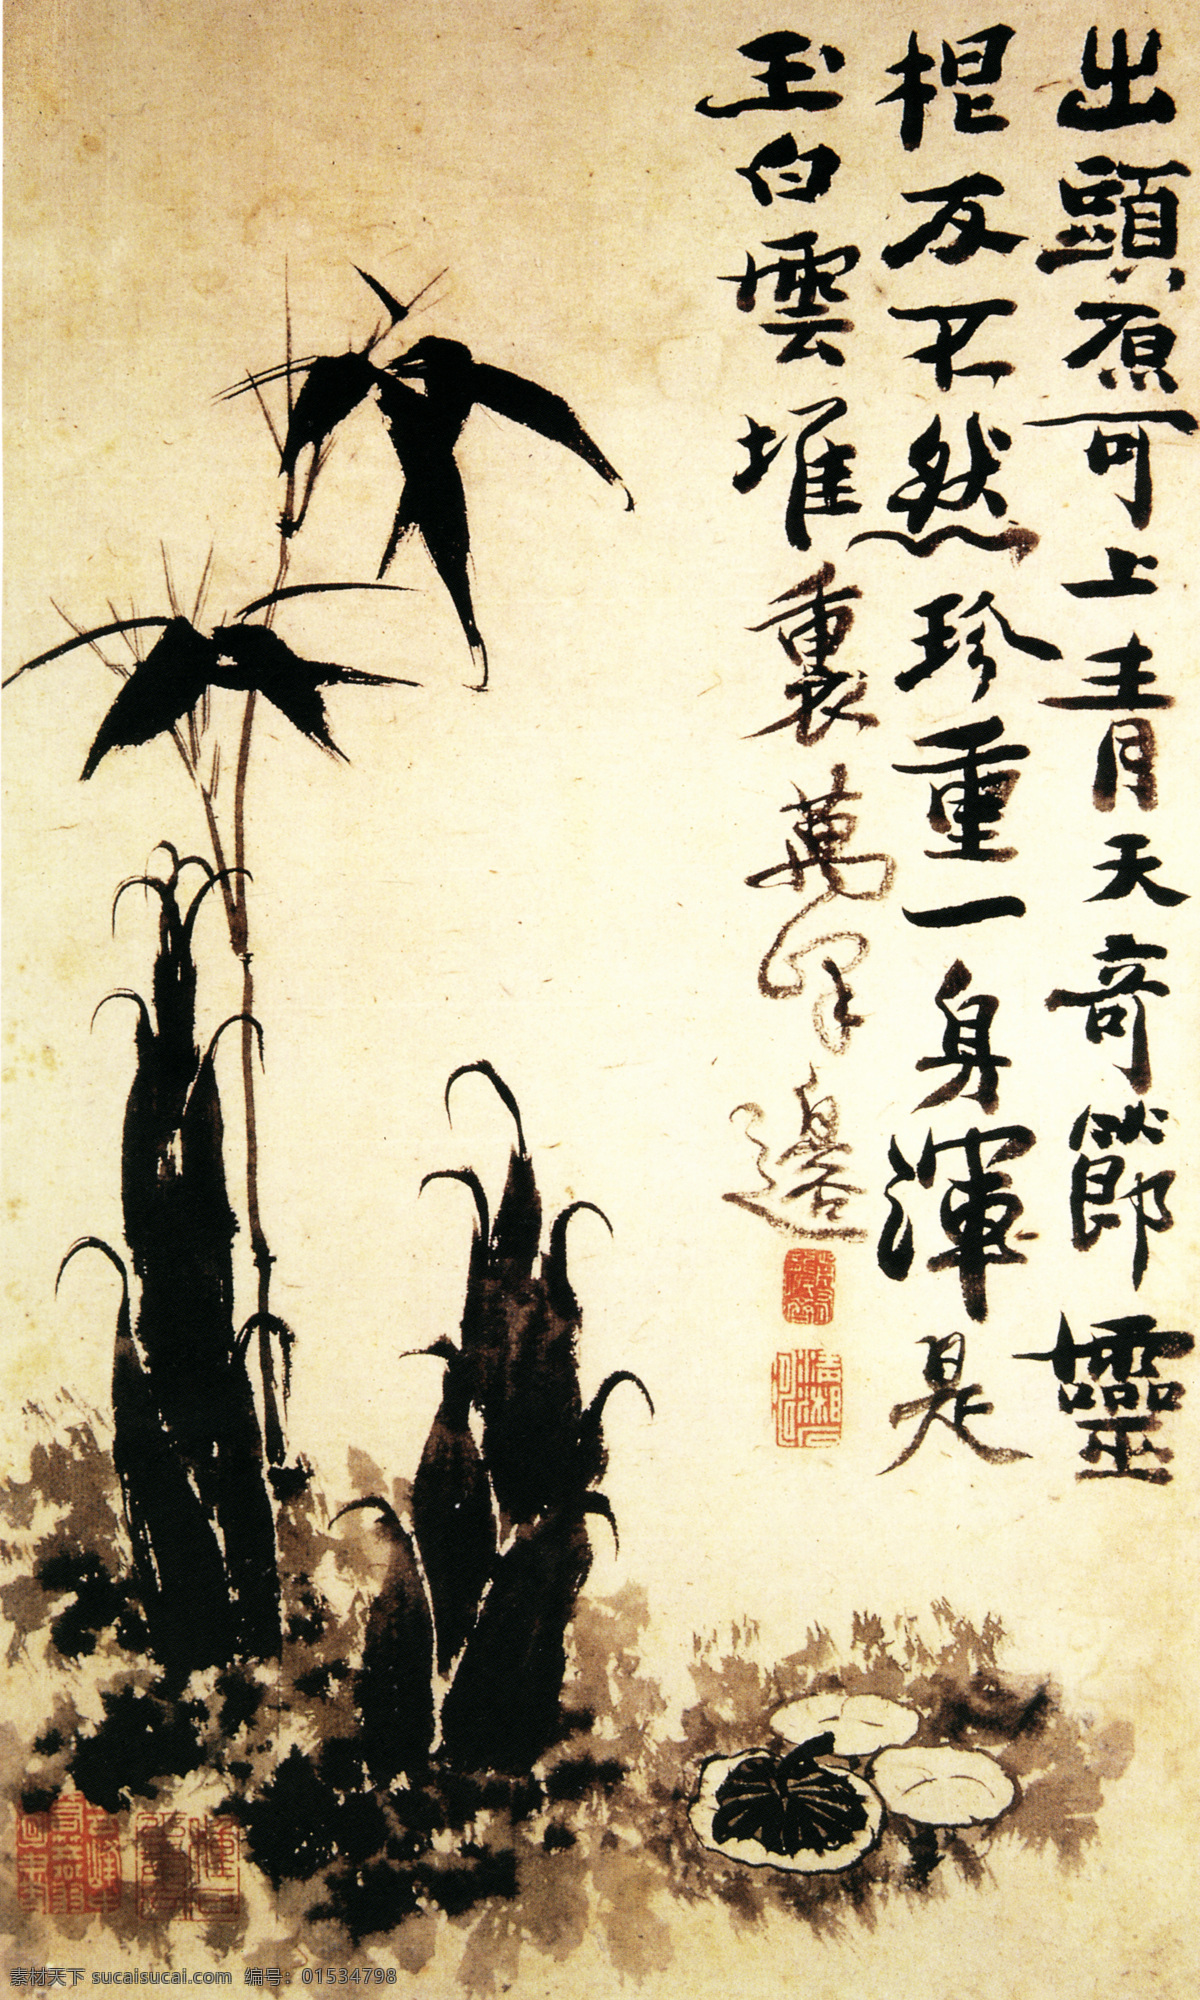 出頭原可上青天奇節靈
根反不然珍重一身渾是
玉白雲堆裏萬峯邊
素材天下 sucaisucai.com 编号：01534798